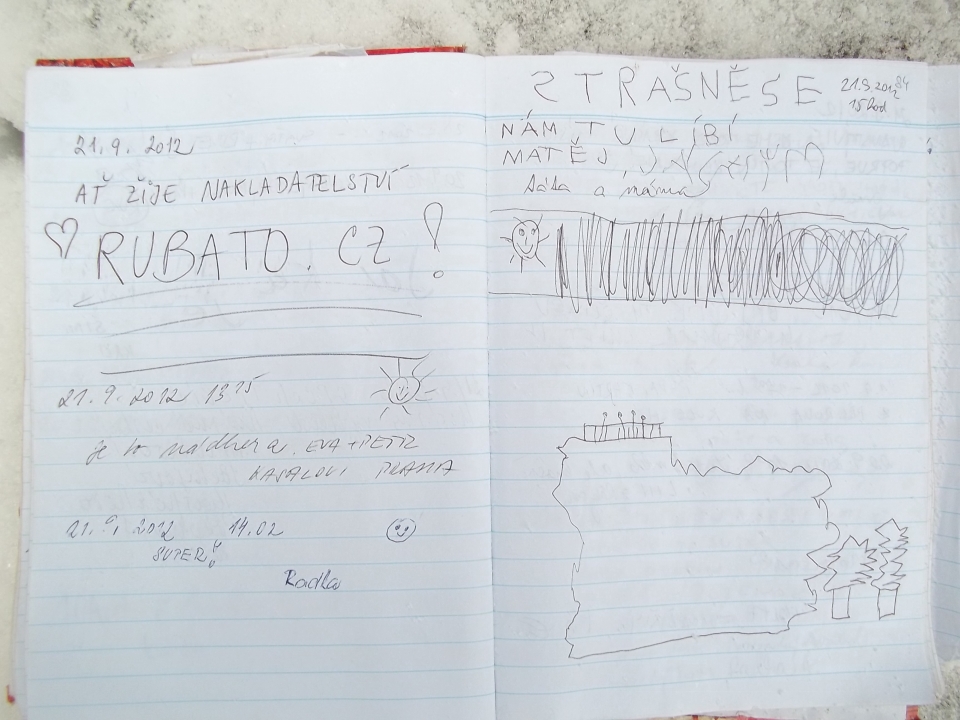 21.9.2012
AŤ ŽIJE NAKLADATELSTVÍ
RUBATO.CZ!
21.9.2012 13 15
Je to nádhera. EVA + PETR
KASALOVI PRAHA
21.9. 2012 14.02
SUPER!
Radka
STRAŠNĚSE
21.9.2012
15hod
NÁM TU LÍBÍ
MATĚJ
táta a máma